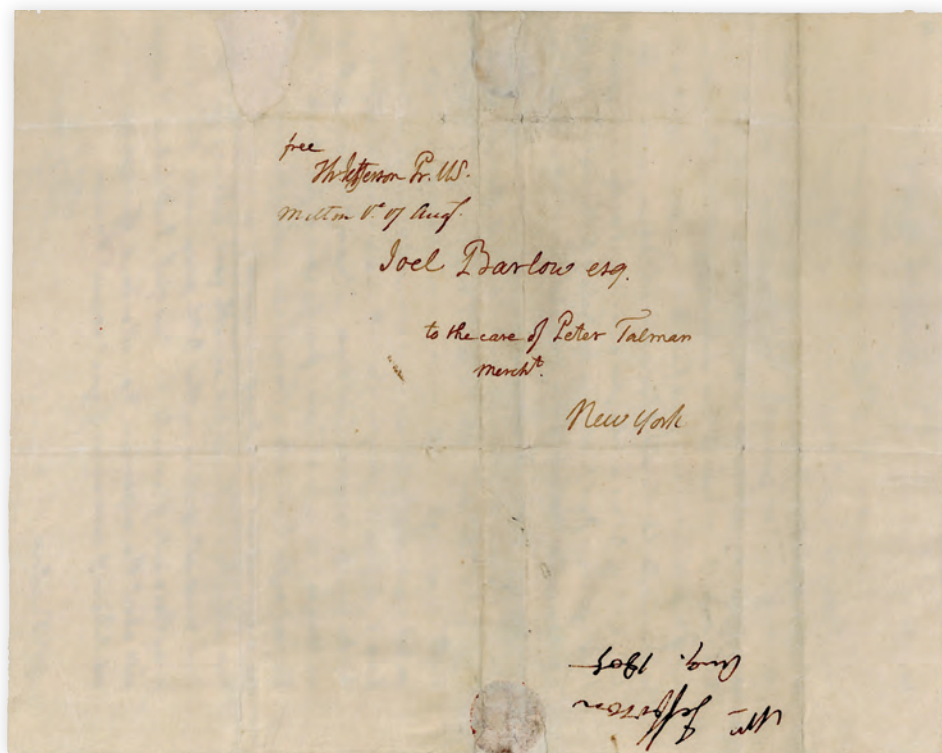 free
Th: Jefferson Pr. US.
Milton Va. 17 Aug.
Joel Barlow esq.
to the care of Peter Talman
mercht.
New York
Mr Jefferson
Aug. 1805